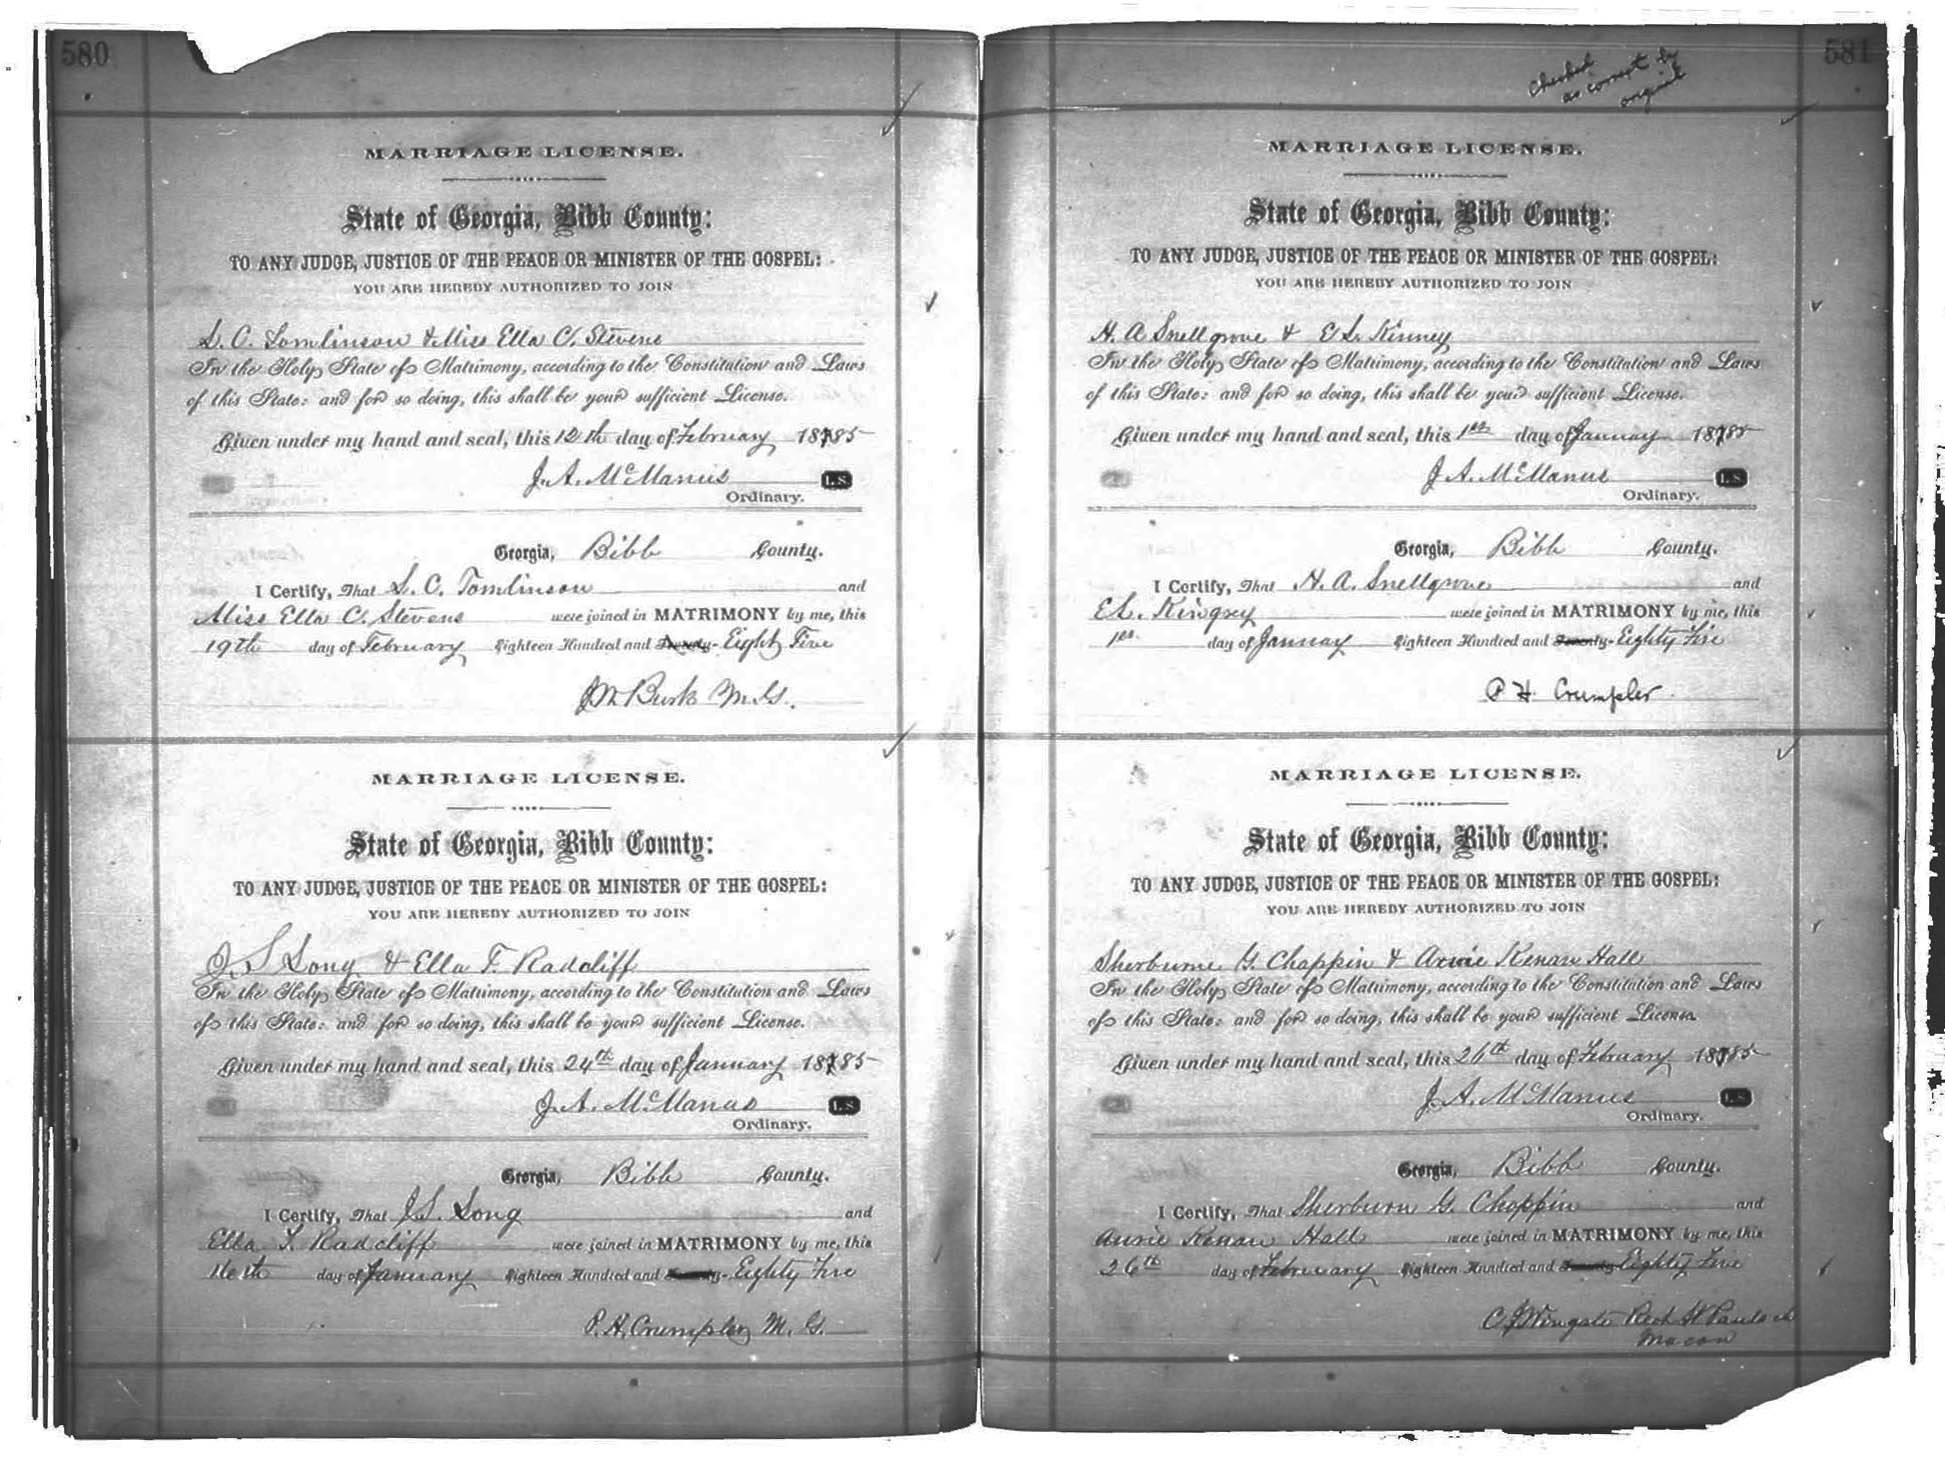 580
MARRIAGE LICENSE.
State of Georgia, Bibb County:
TO ANY JUDGE, JUSTICE OF THE PEACE OR MINISTER OF THE GOSPEL:
YOU ARE HEREBY AUTHORIZED TO JOIN
S. C. Tomlinson & Miss Ella C. Stevens
In the Holy State of Matrimony, according to the Constitution and Laws
of this State: and for so doing, this shall be your sufficient License.
Given under my hand and seal, this 12th day of February 18785
J. A. McManus L.S.
Ordinary.
Georgia, Bibb County.
I Certify, That S. C. Tomlinson and
Miss Ella C. Stevens were joined in MATRIMONY by me, this
19th day of February Eighteen Hundred and Seventy- Eighty Five
J M Burk M.G.
MARRIAGE LICENSE.
State of Georgia, Bibb County:
TO ANY JUDGE, JUSTICE OF THE PEACE OR MINISTER OF THE GOSPEL:
YOU ARE HEREBY AUTHORIZED TO JOIN
J. S Song & Ella F. Radcliff
In the Holy State of Matrimony, according to the Constitution and Laws
of this State: and for so doing, this shall be your sufficient License.
Given under my hand and seal, this 24th day of January 18785
J. A. McManus L.S.
Ordinary.
Georgia, Bibb County.
I Certify, That J. S. Song and
Ella F. Radcliff were joined in MATRIMONY by me, this
day of January Eighteen Hundred and Seventy- Eighty Five
P. H. Crumpler M. G.
581
Checked
as correct by
original
MARRIAGE LICENSE.
State of Georgia, Bibb County:
TO ANY JUDGE, JUSTICE OF THE PEACE OR MINISTER OF THE GOSPEL:
YOU ARE HEREBY AUTHORIZED TO JOIN
H. A Snellgrove & E L. Kinney
In the Holy State of Matrimony, according to the Constitution and Laws
of this State: and for so doing, this shall be your sufficient License.
Given under my hand and seal, this 1st day of January 18785
J A. McManus L.S.
Ordinary.
Georgia, Bibb County.
I Certify, That H. A. Snellgrove and
E L. Kingrey were joined in MATRIMONY by me, this
1st day of January Eighteen Hundred and Seventy- Eighty Five
P H Crumpler
MARRIAGE LICENSE.
State of Georgia, Bibb County:
TO ANY JUDGE, JUSTICE OF THE PEACE OR MINISTER OF THE GOSPEL:
YOU ARE HEREBY AUTHORIZED TO JOIN
Sherburne G. Chappin & Annie Kenan Hall
In the Holy State of Matrimony, according to the Constitution and Laws
of this State: and for so doing, this shall be your sufficient License
Given under my hand and seal, this 26th day of February 18785
J. A. McManus L.S.
Ordinary.
Georgia, Bibb County.
I Certify, That Sherburn G. Chappin and
Annie Kenan Hall were joined in MATRIMONY by me, this
26th day of February Eighteen Hundred and Seventy- Eighty Five
C J Wingate Rect St Pauls ch
Macon